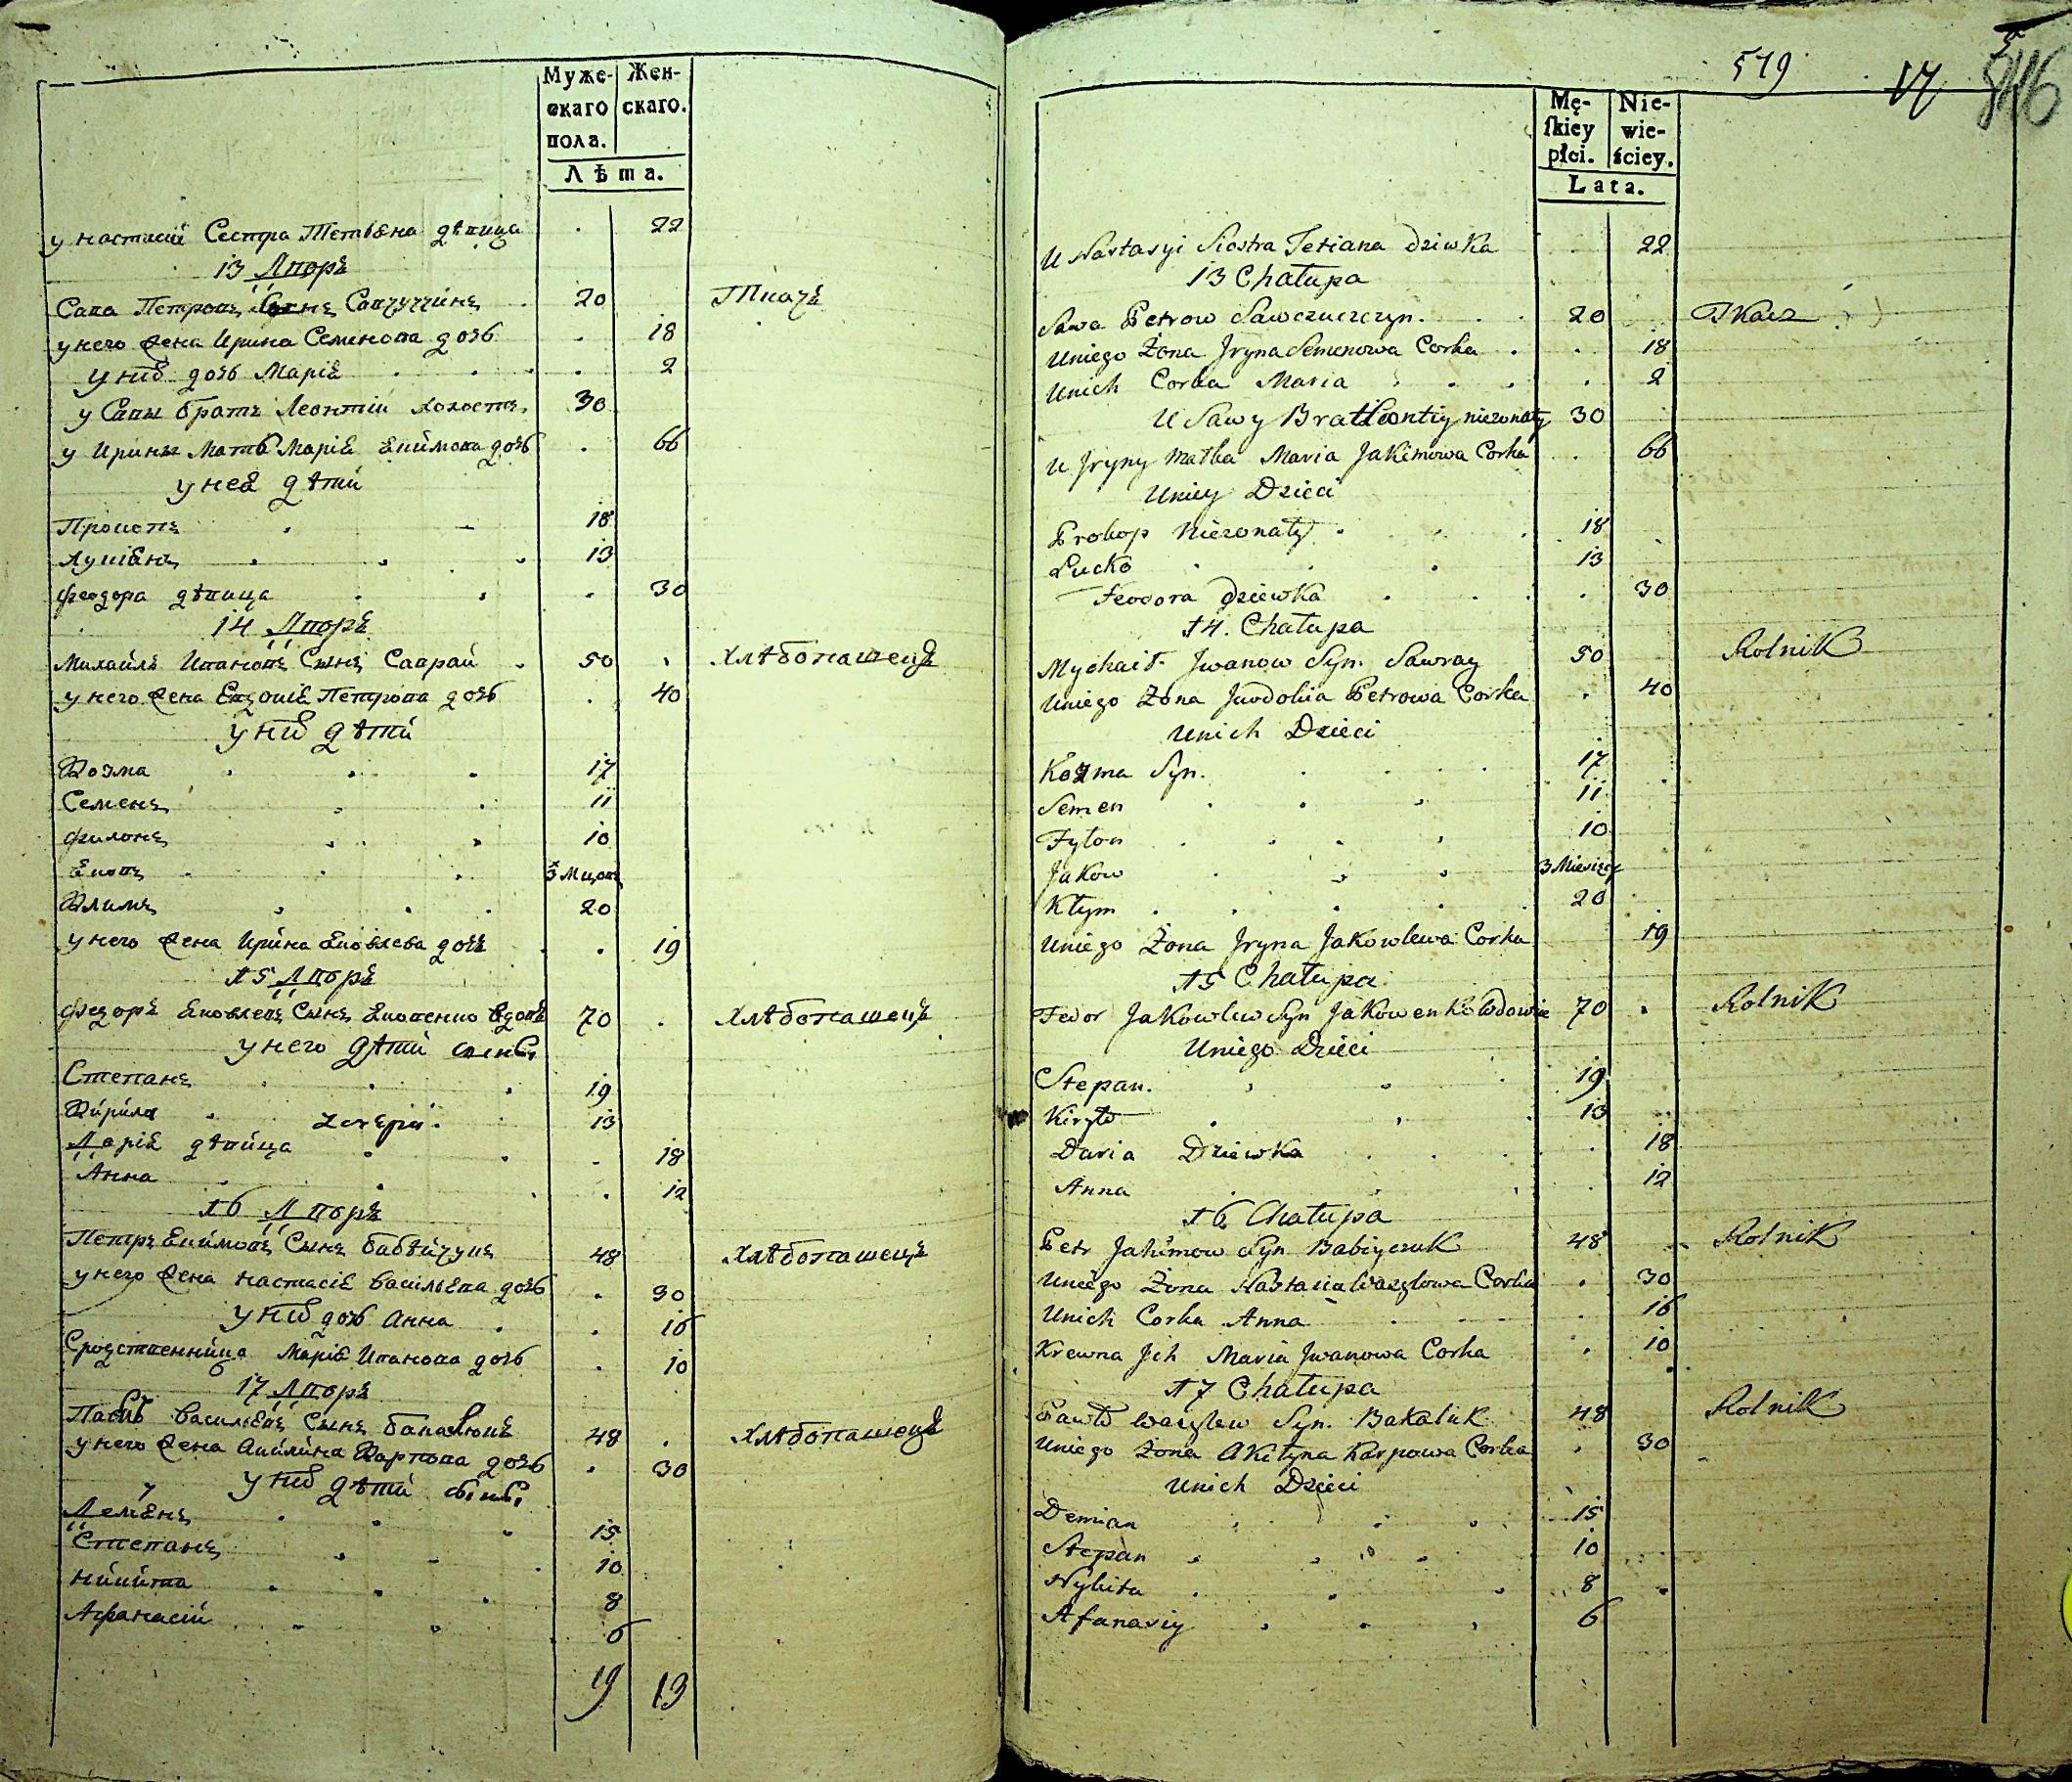 Муже-
скаго
пола.
Жен-
скаго.
Лѣта.
у настасіи Сестра Тетьяна дѣвица . 22
13 Дворъ
Сава Петровъ Сынъ Савчучинъ . 20 Ткачъ
у него жена Ирина Семенова дочь . 18
у нихъ дочь Марія . . . . 2
у Савы братъ Леонтій холостъ 30
у Ирины Мать Марія Екимова дочь . 66
у нея дѣти
Прокопъ . - 18
Лукіанъ . . . 13
Феодора дѣвица . . . 30
14 Дворъ
Михайлъ Ивановъ Сынъ Саврай . 50 . Хлѣбопашецъ
у него жена Евдокія Петрова дочь . 40
у нихъ дѣти
Козма . . . 17
Семенъ . . 11
Филонъ . . 10
Яковъ . . . 3 Мцовъ
Климъ . . . 20
у него жена Ирина Яковлева дочь . . 19
15 Дворъ
Федоръ Яковлевъ Сынъ Яковенко вдовъ 70 . Хлѣбопашецъ
у него дѣти сыны
Степанъ . . . 19
Кирила . дочери . 13
Дарія дѣвица . . . 18
Анна . . . . 12
16 Дворъ
Петръ Екимовъ Сынъ бабѣйчукъ 48 Хлѣбопашецъ
у него жена настасія васильева дочь . 30
у нихъ дочь Анна . . 16
Сродственница Марія Иванова дочь . 10
17 Дворъ
Павлъ васильевъ Сынъ бакалюкъ 48 . Хлѣбопашецъ
у него жена Акилина Карпова дочь . 30
у нихъ дѣти сыны
Демянъ . . . 15
Степанъ . - . 10
Никита . . . 8
Афанасій . - . 6
19 13
519 17 546
Mę-
ſkiey
płci.
Nie-
wie-
ściey.
Lata.
U Nastasyi Siostra Tetiana dziwka . 22
13 Chałupa
Sawa Petrow Sawczuczczyn . . . 20 Tkacz
Uniego Żona Jryna Semenowa Corka . . 18
Unich Corka Maria . . . . 2
U Sawy Brat Leontiy nieżonaty 30
U Jryny Matka Maria Jakimowa Corka . 66
Uniey Dzieci
Prokop Nieżonaty . . . 18
Lucko . . . 13
Feodora dziewka . . . . 30
14. Chałupa
Mychaił Jwanow Syn Sawray 50 Rolnik
Uniego Żona Jwdokia Petrowa Corka . 40
Unich Dzieci
Kozma Syn. . . . . 17
Semen . . . 11
Fyłon . . . . 10
Jakow . . . 3 Miesięcy
Kłym . . . . . 20
Uniego Żona Jryna Jakowlewa Corka 19
15 Chałupa
Fedor Jakowlew Syn Jakowenko Wdowiec 70 . Rolnik
Uniego Dzieci
Stepan. . . . 19
Kiryło . . . 13
Daria Dziewka . . . . 18
Anna . . . 12
16 Chałupa
Petr Jakimow Syn Babiyczuk 48 Rolnik
Uniego Żona Nastasia Wasylowa Corka . 30
Unich Corka Anna . . . . 16
Krewna Jch Maria Jwanowa Corka . 10
17 Chałupa
Pawło Wasylew Syn. Bakaluk 48 Rolnik
Uniego Żona Akilyna Karpowa Corka . 30
Unich Dzieci
Demian . . . 15
Stepan . . . 10
Nykita . . . 8
Afanasiy . . . 6